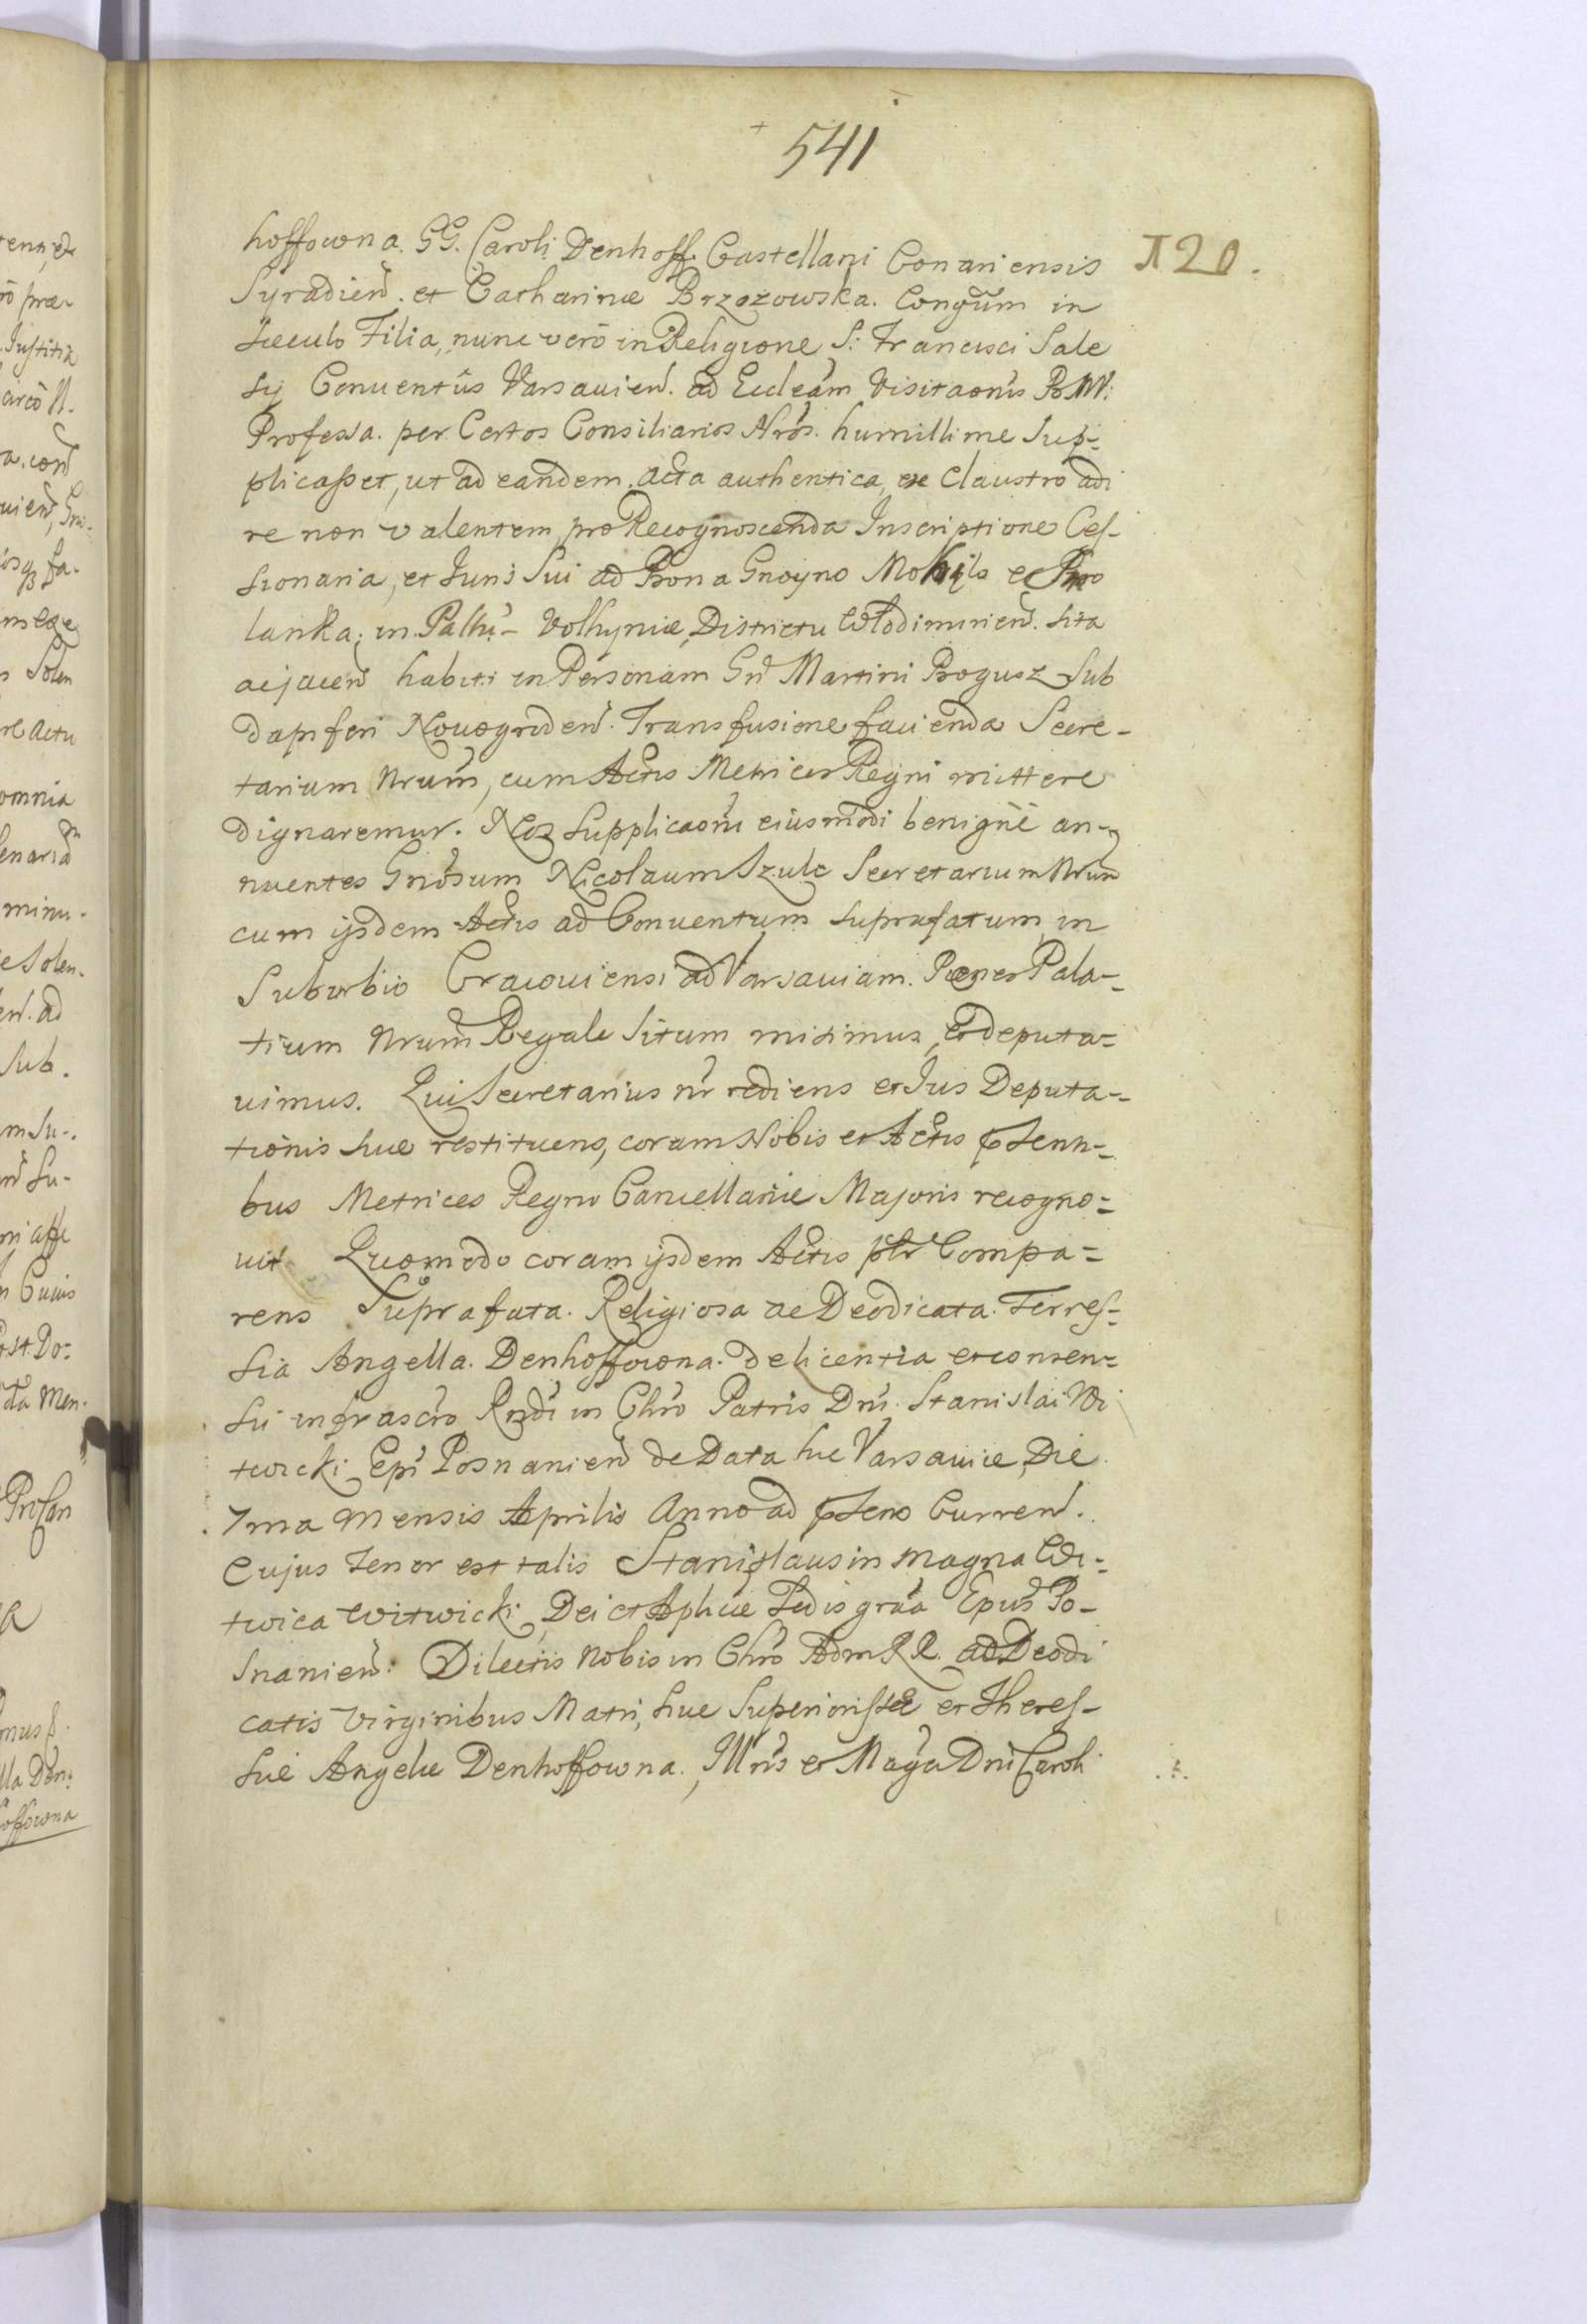 541
hoffowna. GG. Caroli Denhoff Castellani Conariensis
Л20.
Syradien. et Catharinæ Brzozowska. Congum in
sæculo Filia, nunc vero in Religione S: Francisci Sale
sy Conuentûs Varsauien. ad Eccleam Visitaonis B.M.V.
Professa. per Certos Consiliarios Nros. humillime sup-
plicasset, ut ad eandem. acta authentica, ex Claustro adi
re non valentem pro Recognoscenda Inscriptione Ces-
sionaria, et Juris sui ad Bona Gnoyno Mohila et
lanka, in Pallu- Volhyniæ, Districtu Włodimirien. sita
acjacen habiti in Personam Gn Martini Bogusz sub
dapiferi Nouogrden. Transfusione facienda Secre-
tarium Nrum, cum Actis Metrices Regni mittere
dignaremur. Nos supplicaoni eiusmodi benignè an-
nuentes Gnosum Nicolaum Szulc Secretarium Nrum
cum ijsdem Actis ad Conuentum suprafatum in
Suburbio Cracouiensi ad Varsauiam. Penes Pala-
tium Nrum Regale situm misimus, et deputa-
uimus. Qui Secretarius nr rediens et Jus Deputa-
tionis suæ restituens, coram Nobis et Actis psenti-
bus Metrices Regni Cancellariæ Majoris recogno-
uit Quomodo coram ijsdem Actis plr Compa-
rens Suprafata. Religiosa ac Deodicata. Terres-
sia Angella. Denhoffowna. de licentia et consen-
su infrascro Rndi in Chro Patris Dni. Stanislai Wi
twicki Epi Posnanien de Data hic Varsauiæ, Die
7ma mensis Aprilis Anno ad psens Curren.
Cujus tenor est talis Stanislaus in magna Wi-
twica Witwicki, Dei et Aplicæ Sedis graa Epus Po-
snanien. Dilectis Nobis in Chro Adm RR. ac Deodi
catis Virginibus Matri, suæ Superiorissæ et Theres-
siæ Angelæ Denhoffowna. Illris et Magci Dni Caroli